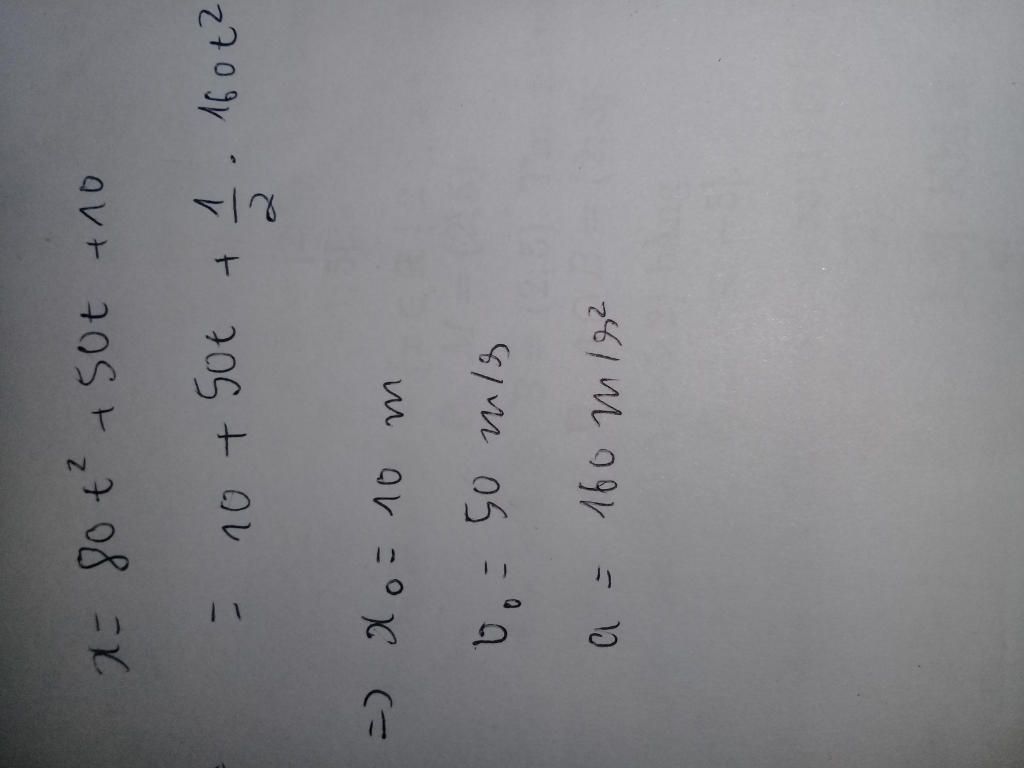 x = 80t² + 50t + 10
= 10 + 50t + 1/2 . 160t²
=> x₀ = 10 m
v₀ = 50 m/s
a = 160 m/s²